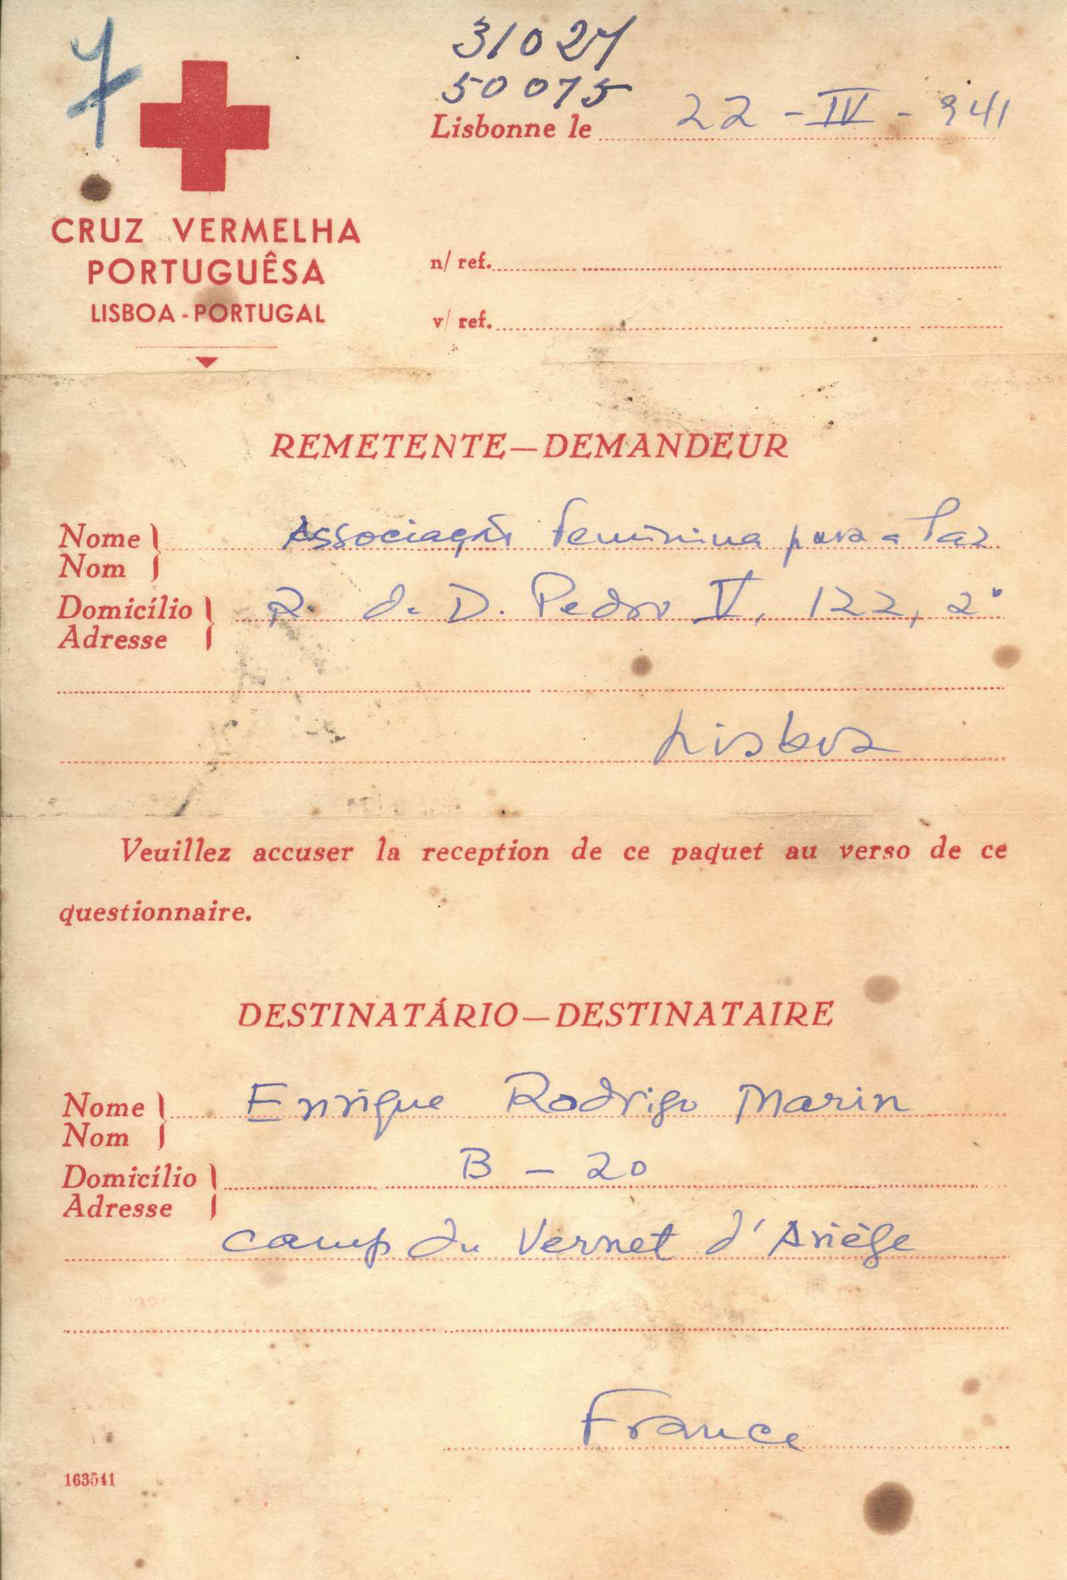 7
31027
50075
Lisbonne le 22 - IV - 941
CRUZ VERMELHA
PORTUGUÊSA
LISBOA - PORTUGAL
n/ ref.
v/ ref.
REMETENTE—DEMANDEUR
Nome Associação feminina para a Paz
Nom
Domicílio R. de D. Pedro V, 122, 2º
Adresse
Lisboa
Veuillez accuser la reception de ce paquet au verso de ce
questionnaire.
DESTINATÁRIO—DESTINATAIRE
Nome Enrique Rodrigo Marin
Nom
Domicílio B - 20
Adresse
camp du Vernet d'Ariège
France
163541